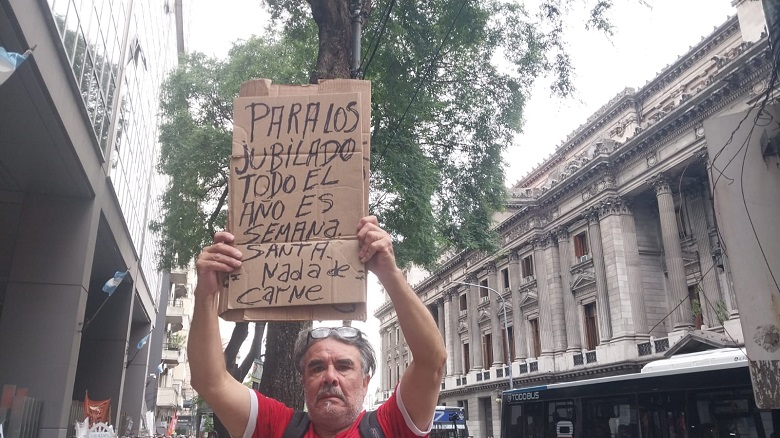 PARA LOS
JUBILADO
TODO EL
AÑO ES
SEMANA.
SANTA.
Nada de
Carne
TODOBUS